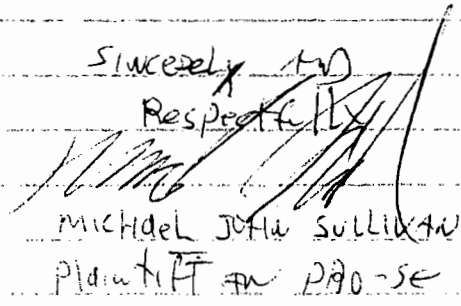 Sincerely AND
Respectfully
MICHAEL JOHN SULLIVAN
Plaintiff IN PRO-SE